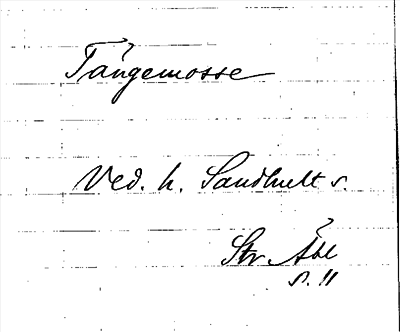 Tångemosse
Ved. h. Sandhult s.
Str. Åbl
s. 11